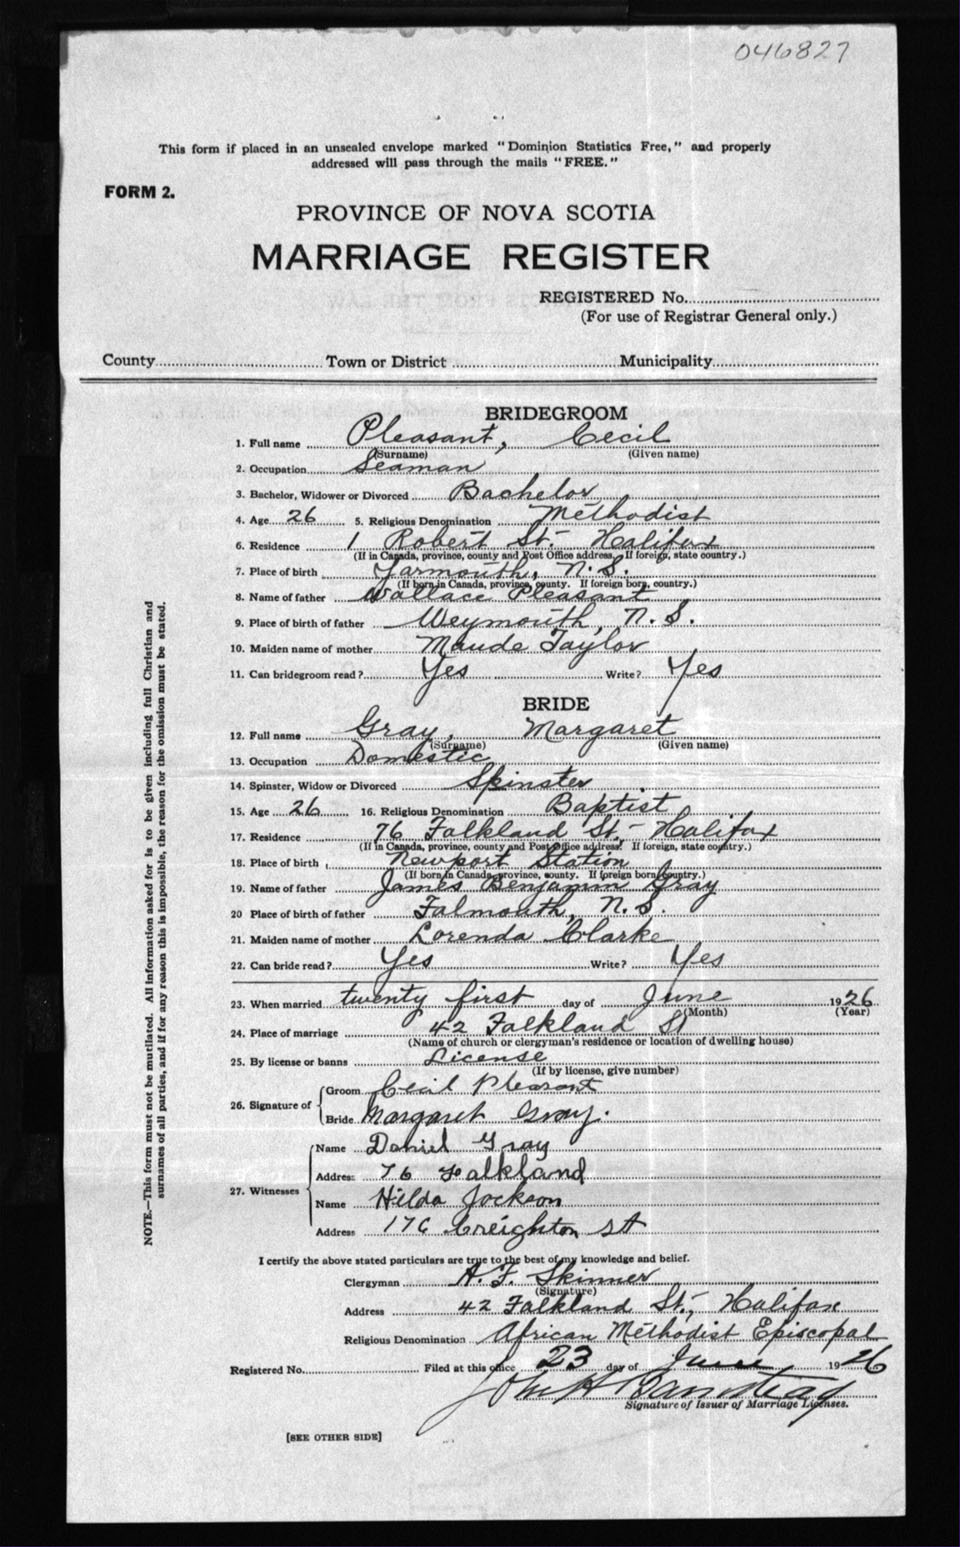 046827
This form if placed in an unsealed envelope marked "Dominion Statistics Free," and properly
addressed will pass through the mails "FREE."
FORM 2.
PROVINCE OF NOVA SCOTIA
MARRIAGE REGISTER
REGISTERED No.
(For use of Registrar General only.)
County Town or District Municipality
BRIDEGROOM
1. Full name Pleasant, Cecil
(Surname) (Given name)
2. Occupation Seaman
3. Bachelor, Widower or Divorced Bachelor
4. Age 26 5. Religious Denomination Methodist
6. Residence 1 Robert St. - Halifax
(If in Canada, province, county and Post Office address. If foreign, state country.)
7. Place of birth Yarmouth, N.S.
(If born in Canada, province, county. If foreign born, country.)
8. Name of father Wallace Pleasant
9. Place of birth of father Weymouth, N.S.
10. Maiden name of mother Maude Taylor
11. Can bridegroom read? Yes Write? Yes
BRIDE
12. Full name Gray, Margaret
(Surname) (Given name)
13. Occupation Domestic
14. Spinster, Widow or Divorced Spinster
15. Age 26 16. Religious Denomination Baptist
17. Residence 76 Falkland St. - Halifax
(If in Canada, province, county and Post Office address. If foreign, state country.)
18. Place of birth Newport Station
(If born in Canada, province, county. If foreign born, country.)
19. Name of father James Benjamin Gray
20 Place of birth of father Falmouth, N.S.
21. Maiden name of mother Lorenda Clarke
22. Can bride read? Yes Write? Yes
23. When married twenty first day of June 1926
(Month) (Year)
24. Place of marriage 42 Falkland St
(Name of church or clergyman's residence or location of dwelling house)
25. By license or banns License
(If by license, give number)
26. Signature of Groom Cecil Pleasant
Bride Margaret Gray.
27. Witnesses Name Daniel Gray
Address 76 Falkland
Name Hilda Jackson
Address 176 Creighton St
I certify the above stated particulars are true to the best of my knowledge and belief.
Clergyman A. F. Skinner
(Signature)
Address 42 Falkland St. - Halifax
Religious Denomination African Methodist Episcopal
Registered No. Filed at this office 23 day of June 1926
John H
Signature of Issuer of Marriage Licenses.
[SEE OTHER SIDE]
NOTE.—This form must not be mutilated. All information asked for is to be given including full Christian and
surnames of all parties, and if for any reason this is impossible, the reason for the omission must be stated.